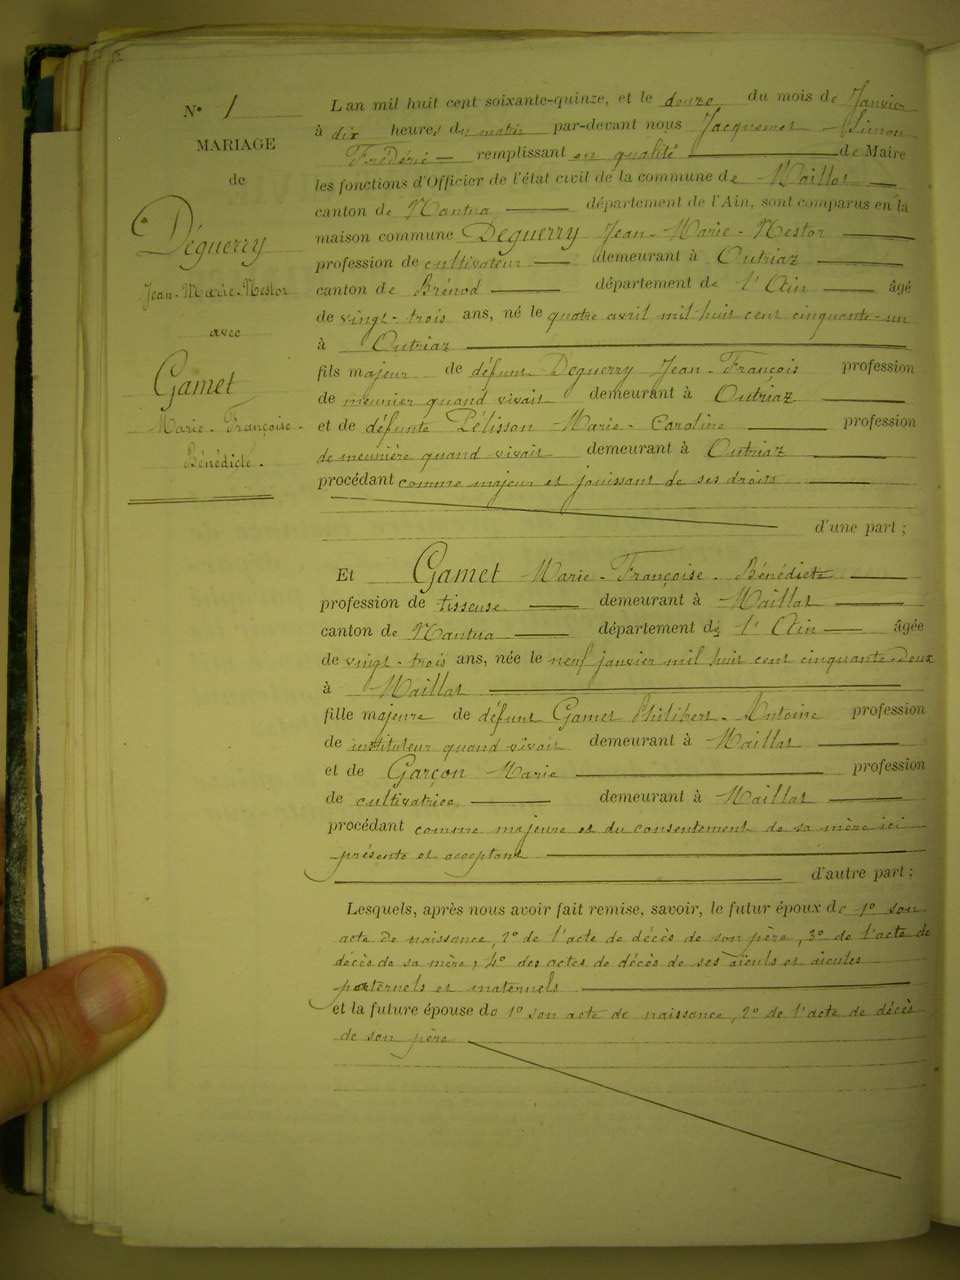 N° 1
MARIAGE
de
Déguerry
Jean-Marie-Nestor
avec
Gamet
Marie-Françoise-
Bénédicte.
L'an mil huit cent soixante-quinze, et le douze du mois de Janvier
à dix heures du matin par-devant nous Jacquemet Simon
Frédéric remplissant en qualité de Maire
les fonctions d'Officier de l'état civil de la commune de Maillat
canton de Nantua département de l'Ain, sont comparus en la
maison commune Déguerry Jean-Marie-Nestor
profession de cultivateur demeurant à Outriaz
canton de Brénod département de l'Ain âgé
de vingt-trois ans, né le quatre avril mil huit cent cinquante-un
à Outriaz
fils majeur de défunt Déguerry Jean-François profession
de meunier quand vivait demeurant à Outriaz
et de défunte Pélisson Marie-Caroline profession
de meunière quand vivait demeurant à Outriaz
procédant comme majeur et jouissant de ses droits
d'une part ;
Et Gamet Marie-Françoise-Bénédicte
profession de tisseuse demeurant à Maillat
canton de Nantua département de l'Ain âgée
de vingt-trois ans, née le neuf janvier mil huit cent cinquante-deux
à Maillat
fille majeure de défunt Gamet Philibert-Antoine profession
de instituteur quand vivait demeurant à Maillat
et de Garçon Marie profession
de cultivatrice demeurant à Maillat
procédant comme majeure et du consentement de sa mère ici
présente et acceptant
d'autre part ;
Lesquels, après nous avoir fait remise, savoir, le futur époux de 1° son
acte de naissance, 2° de l'acte de décès de son père, 3° de l'acte de
décès de sa mère, 4° des actes de décès de ses aïeuls et aïeules
paternels et maternels
et la future épouse de 1° son acte de naissance, 2° de l'acte de décès
de son père